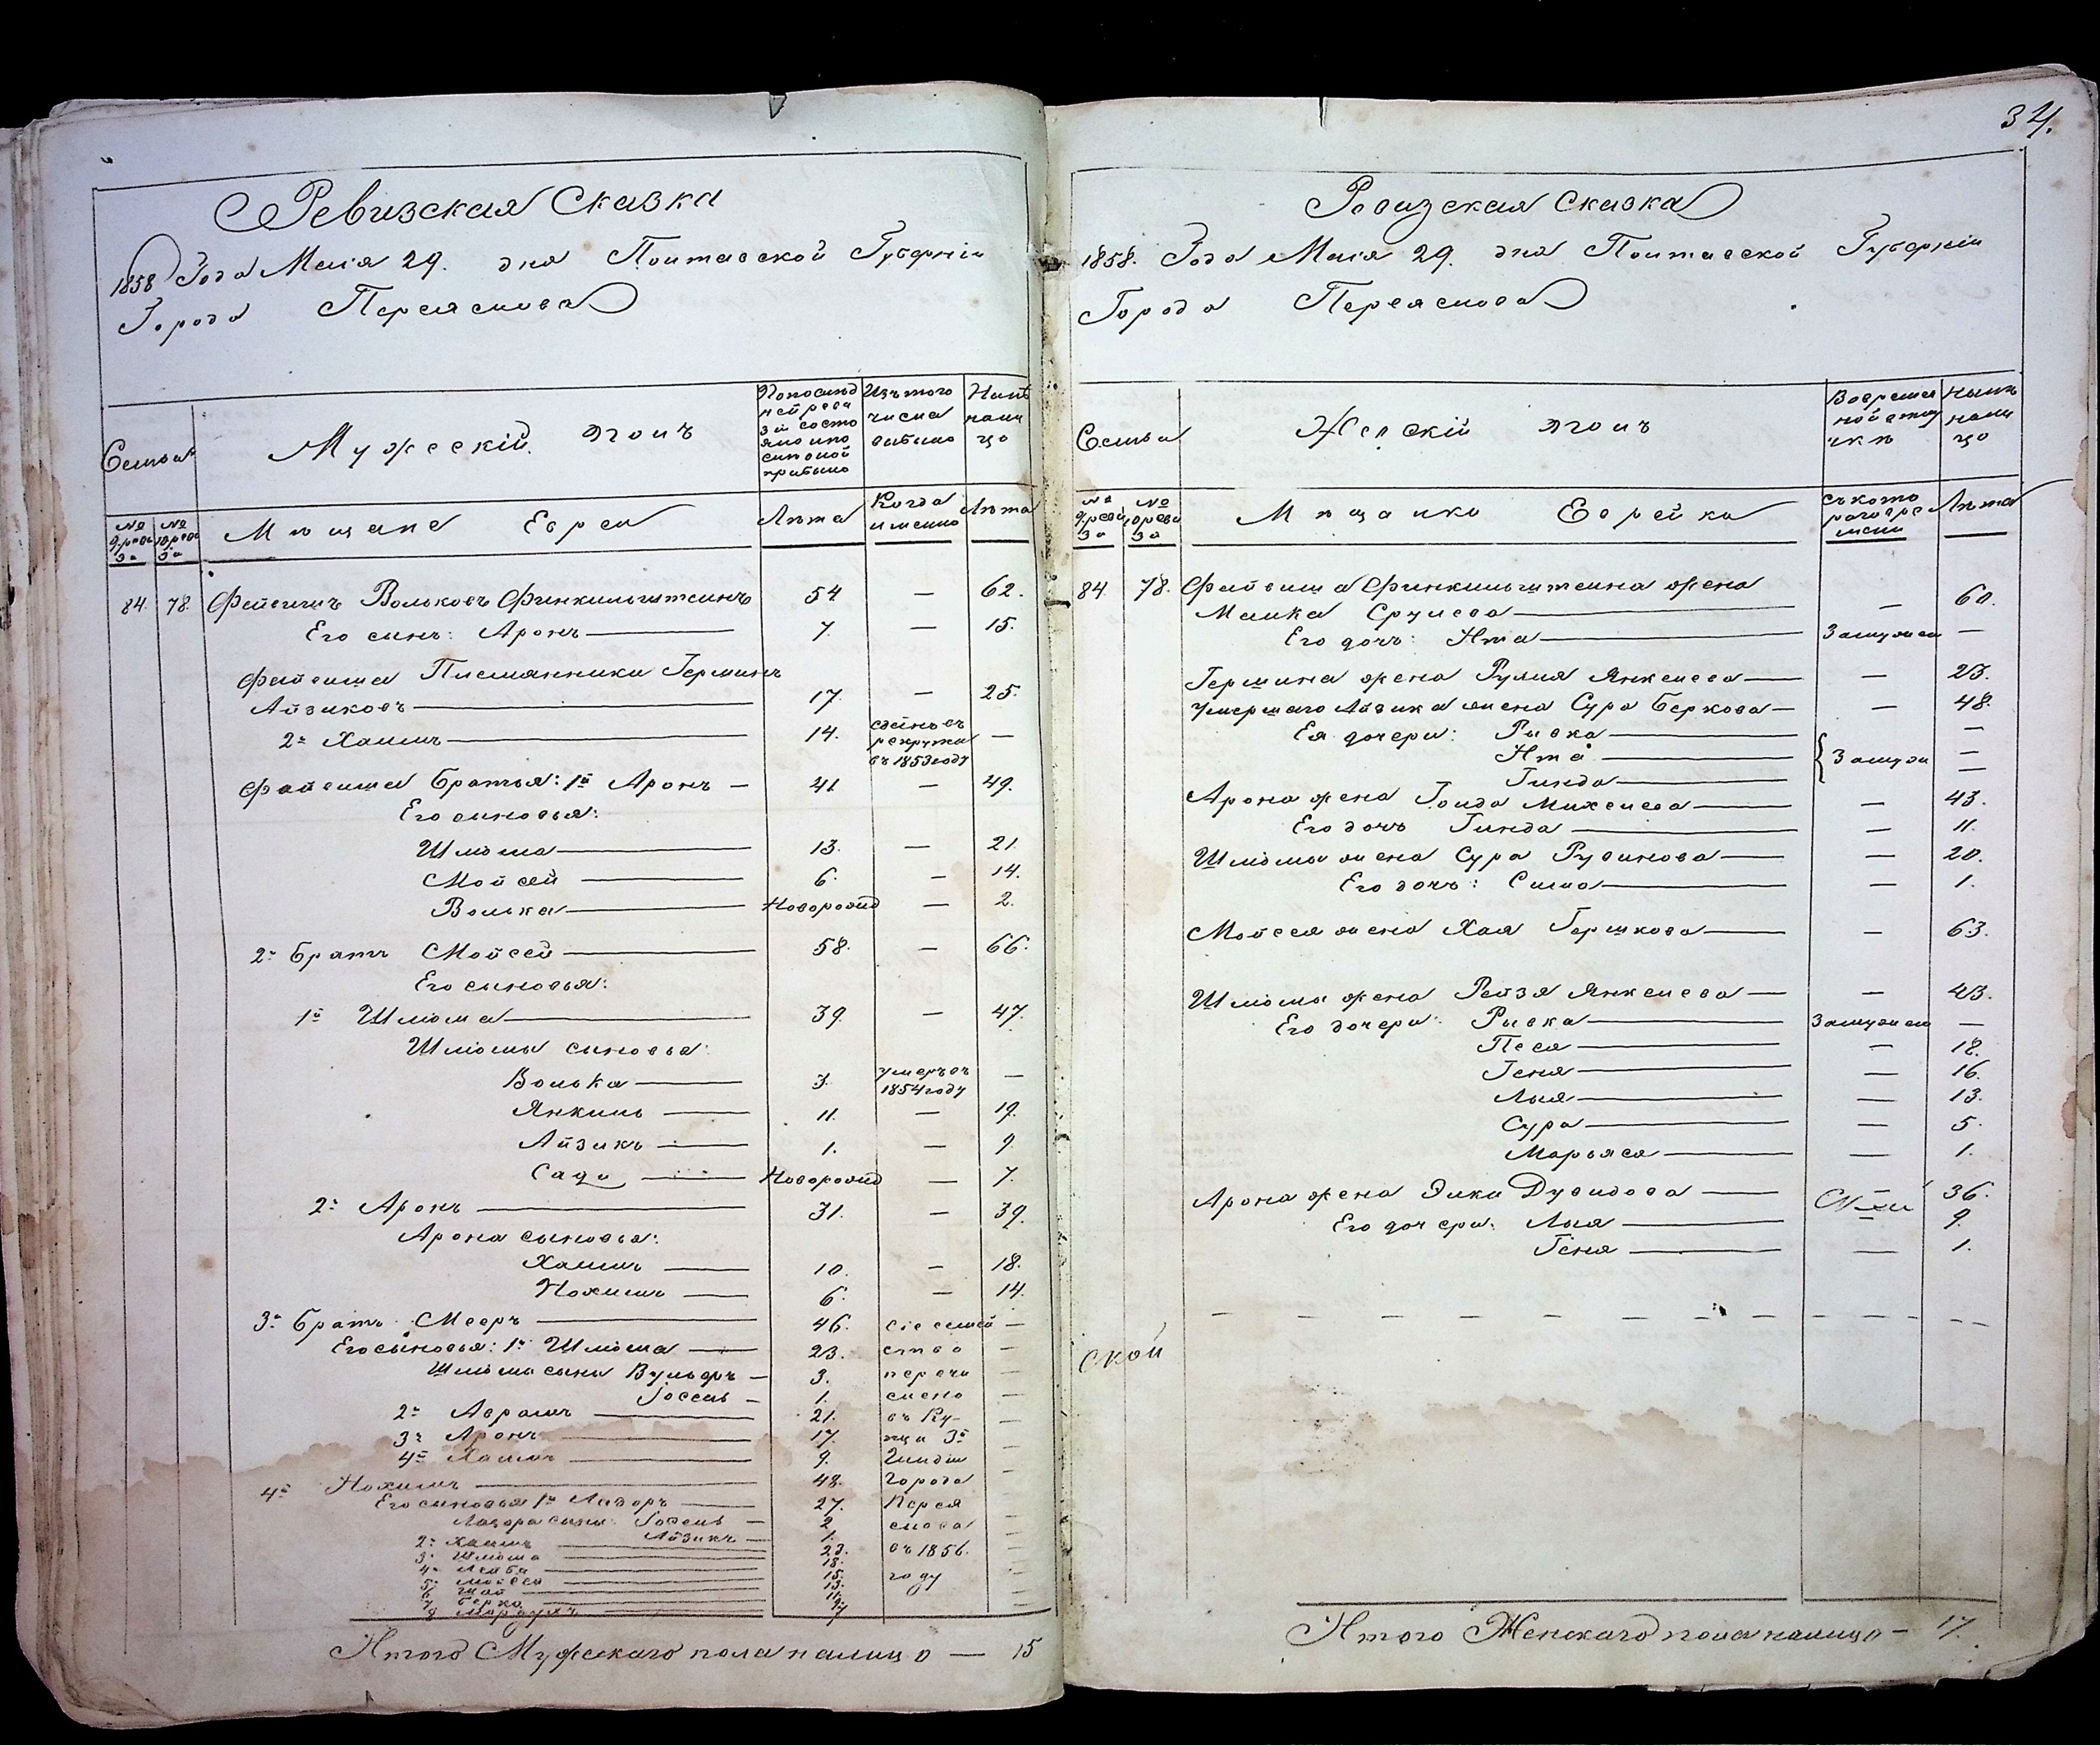 Ревизская Сказка
1858 Года Маія 29. дня Полтавской Губерніи
Города Переяслова
Семьи
Мужескій полъ
По последней ревизіи состояло и по
сіе число прибыло
Изъ того
числа
выбыло
Ныне
на ли
цо
№ 9 ревиз
№ 10 ревиз
Мѣщане Евреи
Лѣта
Когда
именно
Лѣта
84. 78. Фейвишъ Вольковъ Финкильштеинъ 54 — 62.
Его сынъ: Аронъ 7. — 15.
Фейвиша Племянники Гершинъ
Айзиковъ 17. — 25.
2й Хаимъ 14. сданъ въ рекруты въ 1853 году —
Фейвиша братья: 1й Аронъ — 41. — 49.
Его сыновья:
Шліома 13. — 21.
Мойсей 6. — 14.
Волька Новорожд — 2.
2й братъ Мойсей 58. — 66.
Его сыновья:
1й Шліома 39. — 47.
Шліомы сыновья:
Волька 3. умеръ въ 1854 году —
Янкиль 11. — 19.
Айзикъ 1. — 9.
Сади Новорожд — 7.
2й Аронъ 31. — 39.
Арона сыновья:
Хаимъ 10. — 18.
Нохимъ 6. — 14.
3й братъ Мееръ 46. сіе семей —
Его сыновья: 1й Шліома 23. ство —
Шліомы сыны Вульфъ — 3. перечи —
Іосель — 1. слено —
2й Аврамъ 21. въ Ку- —
3й Аронъ 17. пци 3й
4й Хаимъ 9. Гильдіи —
4й Нохимъ 48. города —
Его сыновья 1й Лазоръ 27. Перея
Лазора сыны: Іосель — 2. слова —
Айзикъ — 1. въ 1856. —
2й Хаимъ 23.
3й Шліома 18. году
4й Лейба 15.
5й Мойсей 13.
6 11.
7 Берко 9.
8 Мордухъ 7
Итого Мужескаго пола налицо — 15
34.
Ревизская Сказка
1858. Года Маія 29. дня Полтавской Губерніи
Города Переяслова
Семьи
Женскій полъ
Во времен
ной отлу
чкѣ
Нынѣ
на ли
цо
№ 9 ревиз
№ 10 ревиз
Мѣщанки Еврейки
съ кото
раго вре
мени
Лѣта
84. 78. Фейвиша Финкильштеина жена
Малка Срулева — 60.
Его дочь: Ита Замужем —
Гершина жена Румия Янкелева — 23.
Умершаго Айзика жена Сура Беркова — 48.
Ея дочери: Рывка —
Ита Замужем —
Гинда —
Арона жена Голда Михелева — 43.
Его дочь Гинда — 11.
Шліомы жена Сура Рувинова — 20.
Его дочь: Сима — 1.
Мойсея жена Хая Гершкова — 63.
Шліомы жена Рейзя Янкелева — 43.
Его дочери: Рывка Замужем —
Песя — 18.
Геня — 16.
Лыя — 13.
Сура — 5.
Марьяся — 1.
Арона жена Элки Дувидова — 36.
Его дочери: Лыя 9.
Геня — 1.
ской
Итого Женскаго пола налицо — 17.